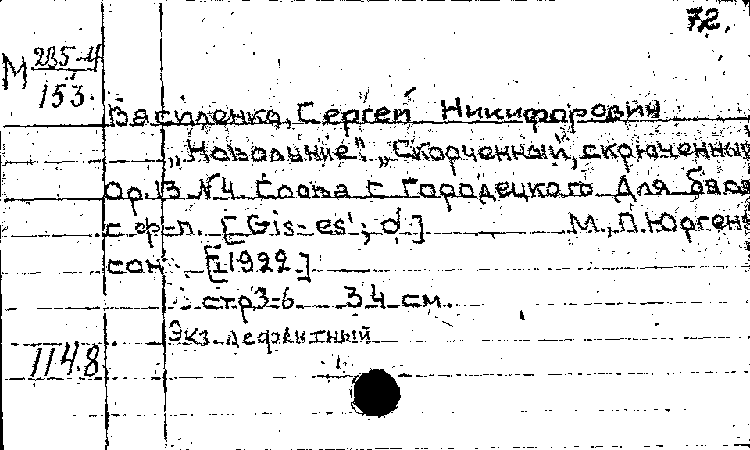 72.
М 235-4
153.
Василенко, Сергей Никифорович
„Новолуние". „Скорченный, скрюченный
Op. 13 № 4. Слова С. Городецкого. Для баса
с ф-п. [Gis-es'; d.] М., П. Юрген
сон [1922]
стр 3-6 34 см.
Экз. дефектный
1148